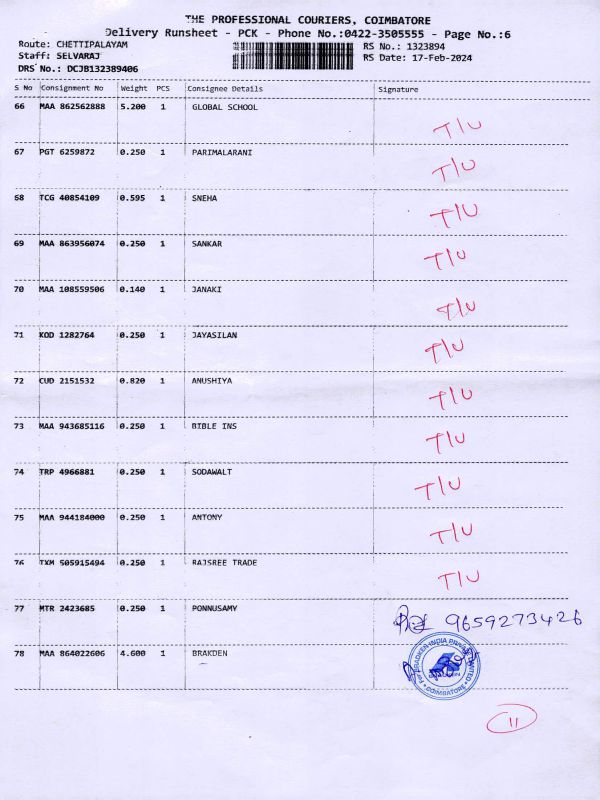 THE PROFESSIONAL COURIERS, COIMBATORE
Delivery Runsheet - PCK - Phone No.:0422-3505555 - Page No.:6
Route: CHETTIPALAYAM RS No.: 1323894
Staff: SELVARAJ RS Date: 17-Feb-2024
DRS No.: DCJB132389406
S No Consignment No Weight PCS Consignee Details Signature
66 MAA 862562888 5.200 1 GLOBAL SCHOOL T/U
67 PGT 6259872 0.250 1 PARIMALARANI T/U
68 TCG 40854109 0.595 1 SNEHA T/U
69 MAA 863956074 0.250 1 SANKAR T/U
70 MAA 108559506 0.140 1 JANAKI T/U
71 KOD 1282764 0.250 1 JAYASILAN T/U
72 CUD 2151532 0.820 1 ANUSHIYA T/U
73 MAA 943685116 0.250 1 BIBLE INS T/U
74 TRP 4966881 0.250 1 SODAWALT T/U
75 MAA 944184000 0.250 1 ANTONY T/U
76 TXM 505915494 0.250 1 RAJSREE TRADE T/U
77 MTR 2423685 0.250 1 PONNUSAMY 9659273426
78 MAA 864022606 4.600 1 BRAKDEN
For BRADKEN INDIA PRIVATE LIMITED
COIMBATORE
11